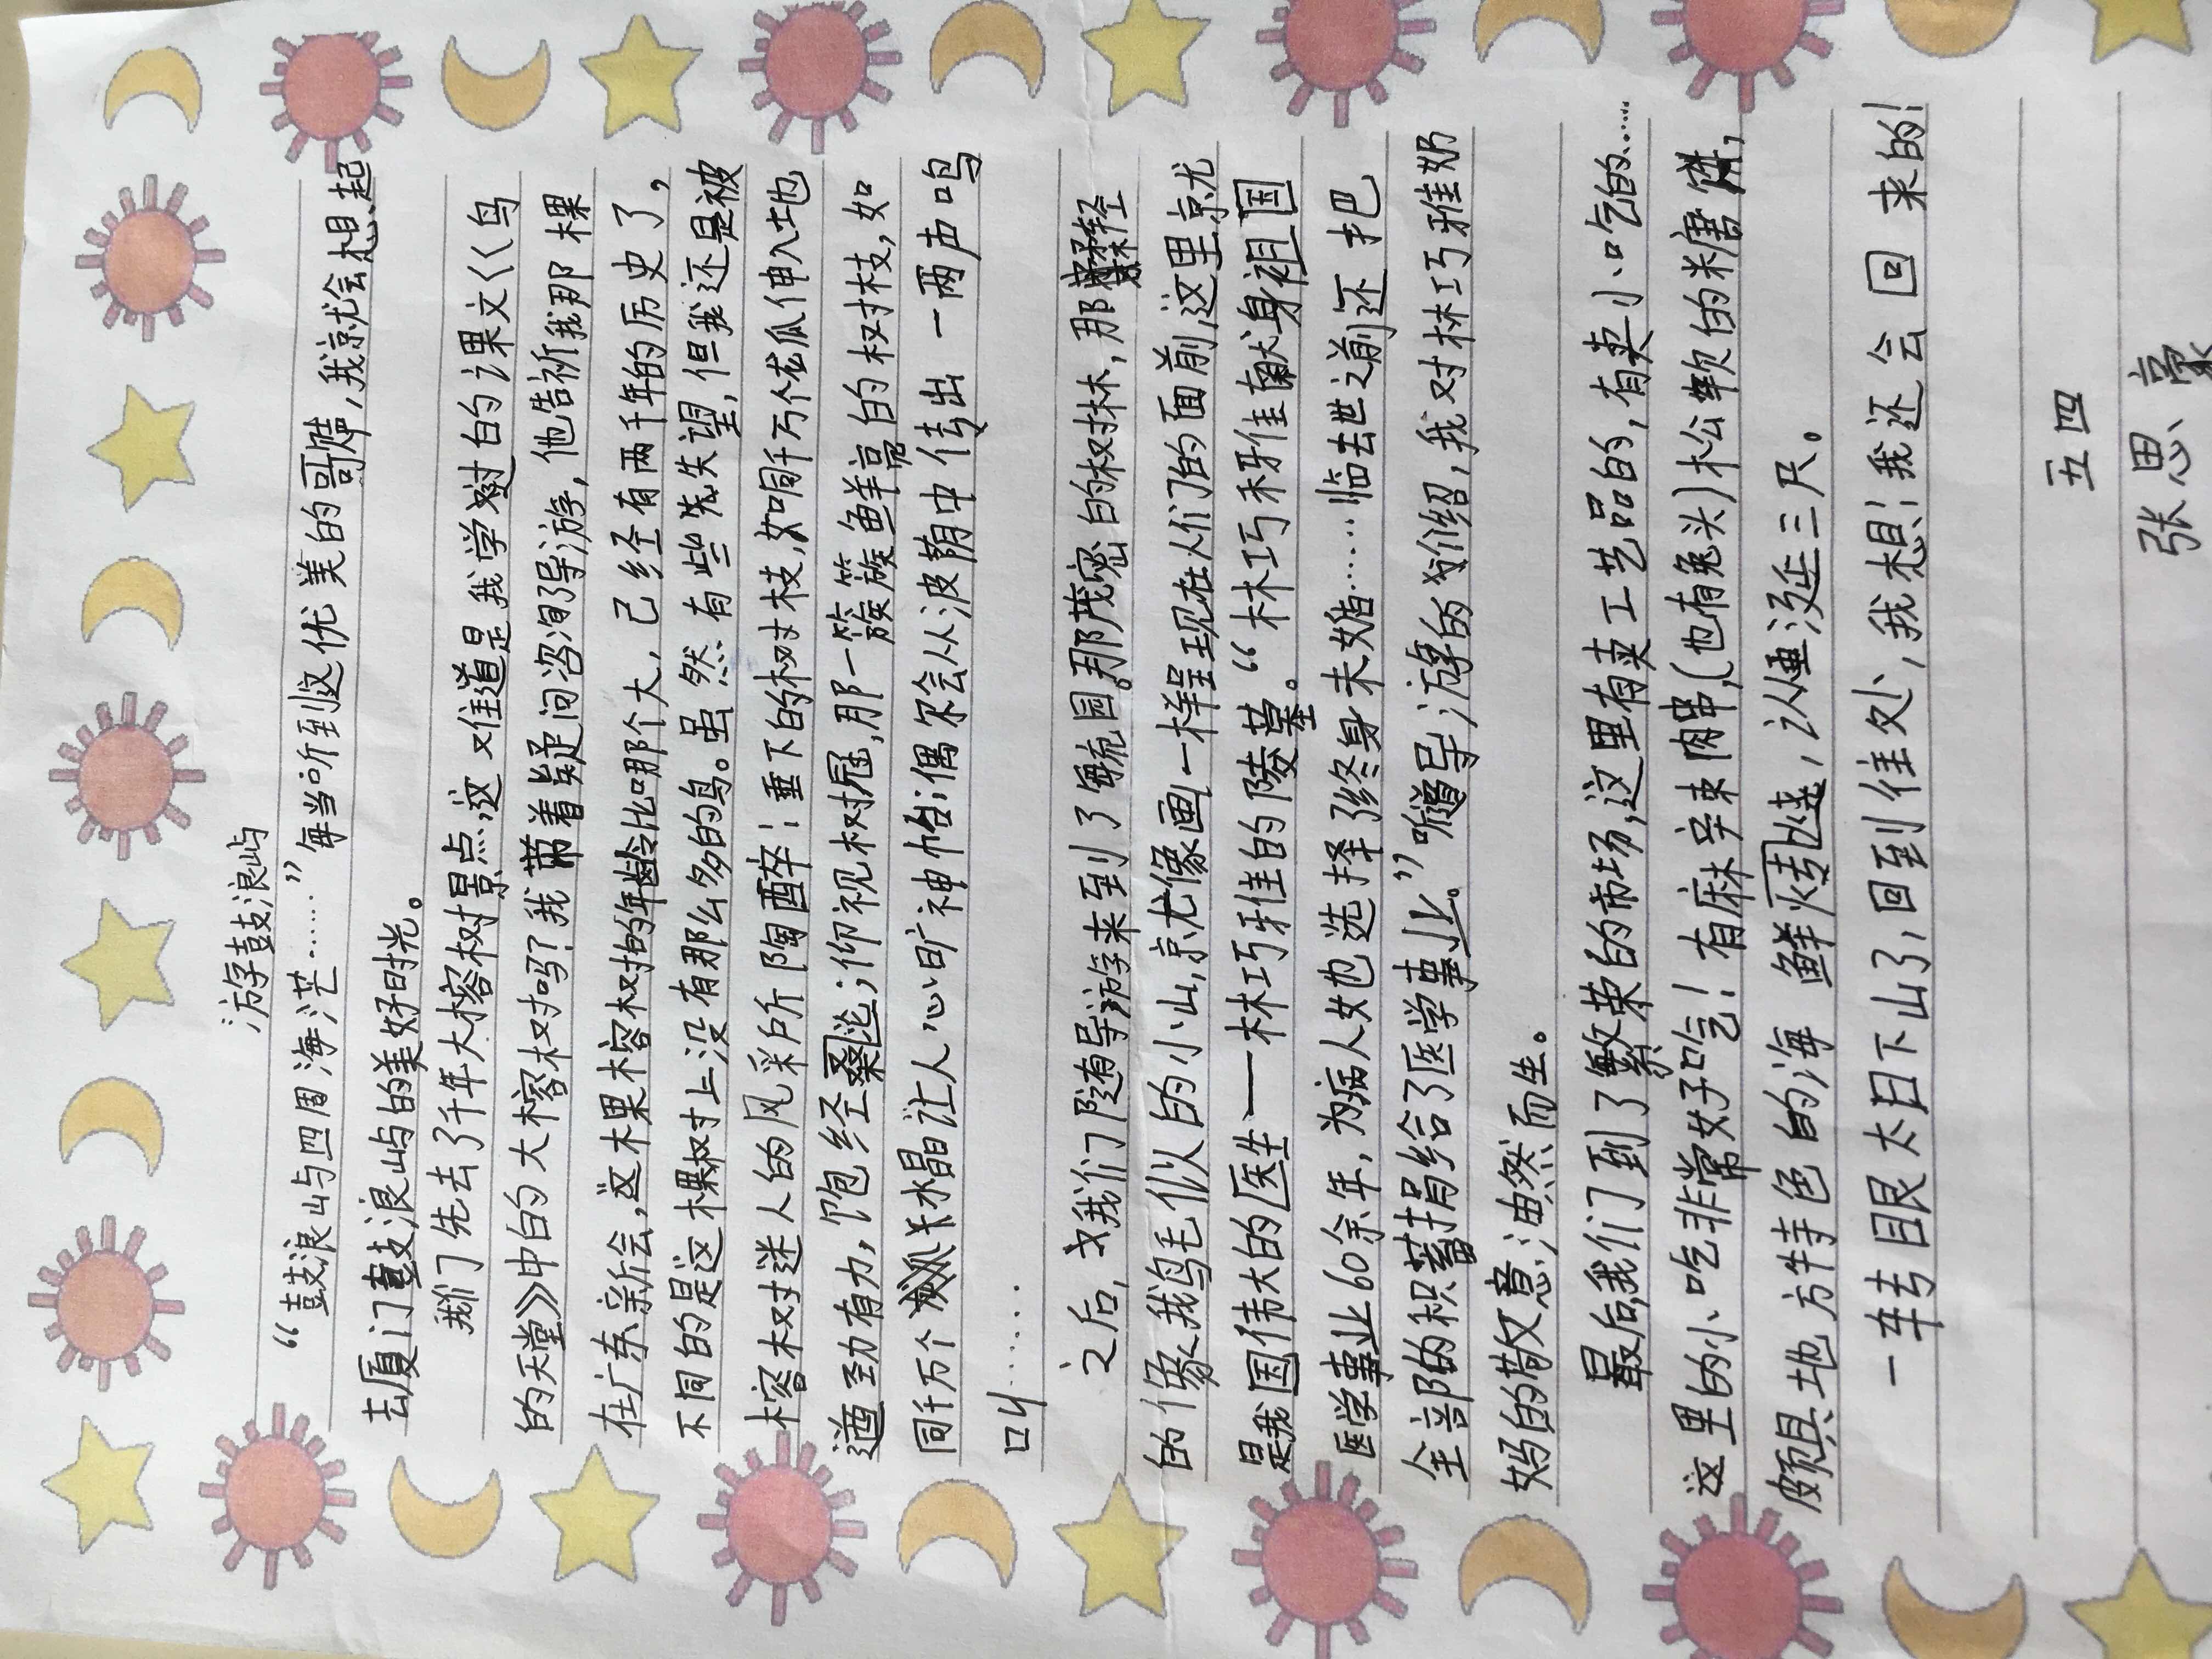 游鼓浪屿
“鼓浪屿四周海茫……”每当听到这优美的歌声,我就会想起
去厦门鼓浪屿的美好时光。
我们先去了千年大榕树景点,这难道是我学过的课文《鸟
的天堂》中的大榕树吗?我带着疑问咨询了导游,他告诉我那棵
在广东新会,这棵榕树的年龄比哪个大,己经有两千年的历史了,
不同的是这棵树上没有那么多的鸟。虽然有些失望,但我还是被
榕树迷人的风采所陶醉:垂下的树枝,如同千万个龙爪伸入地
遒劲有力,饱经桑沧;仰视树冠,那一簇簇鲜亮的树枝,如
同千万个水晶让人心旷神怡;偶尔会从波荫中传出一两声鸣
叫……
之后,我们随着导游来到了毓园。那茂密的树林,那轻
的像我鸟毛似的小山,就像画一样呈现在人们的面前,这里就
是我国伟大的医生——林巧稚的陵墓。“林巧稚献身祖国
医学事业60余年,为病人女也选择了终身未婚……临去世之前还把
全部的积蓄捐给了医学事业。”听导游的介绍,我对林巧稚奶
妈的敬意油然而生。
最后,我们到了繁荣的市场,这里有卖工艺品的,有卖小吃的……
这里的小吃非常好吃!有麻辛束肉串,(也有兔头)松软的糖饼,
颇具地方特色的海鲜烧烤,让人垂涎三尺。
一转眼太日下山了,回到住处,我想:我还会回来的!
五四
张思豪